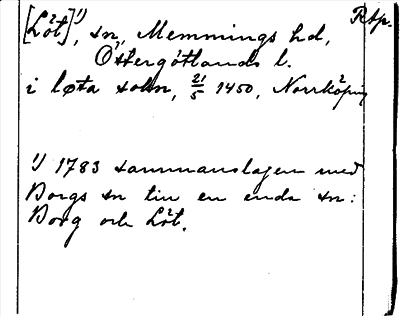 [Löt]¹⁾, sn, Memmings hd, RAp.
Östergötlands l.
i løta sokn, 21/5 1450, Norrköping
1) 1783 sammanslagen med
Borgs sn till en enda sn:
Borg och Löt.